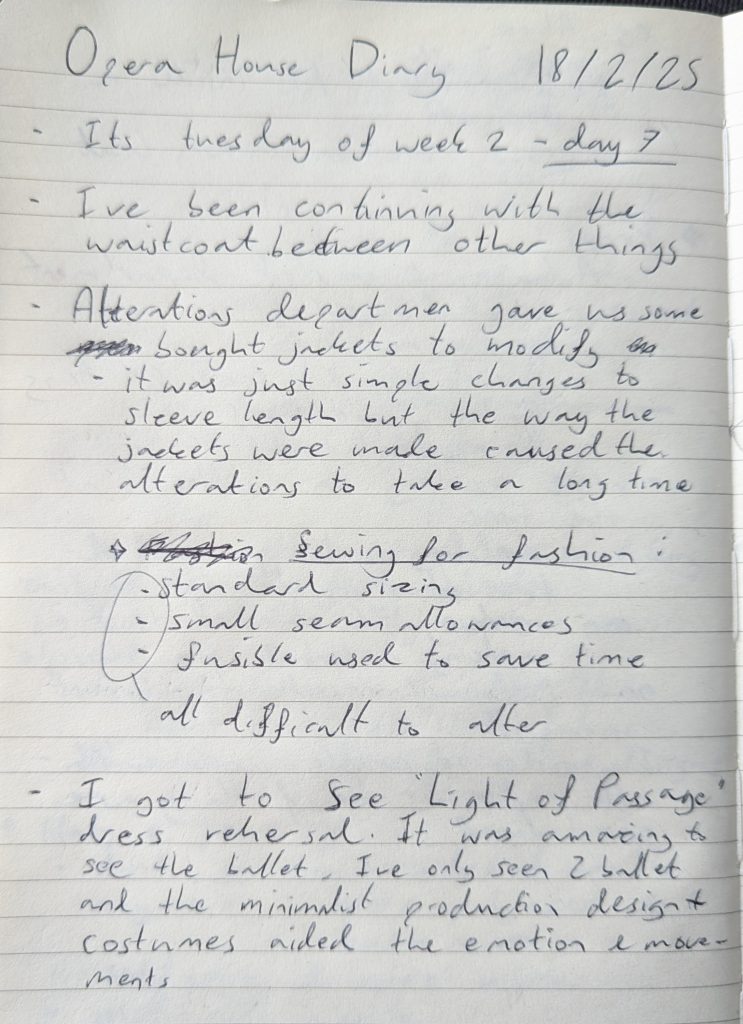 Opera House Diary 18/2/25
- Its tuesday of week 2 - day 7
- I've been continuing with the
waistcoat between other things
- Alterations departmen gave us some
bought jackets to modify
- it was just simple changes to
sleeve length but the way the
jackets were made caused the
alterations to take a long time
→ Sewing for fashion:
- standard sizing
- small seam allowances
- fusible used to save time
all difficult to alter
- I got to see "Light of Passage"
dress rehersal. It was amazing to
see the ballet. I've only seen 2 ballet
and the minimalist production design +
costumes aided the emotion & move-
ments